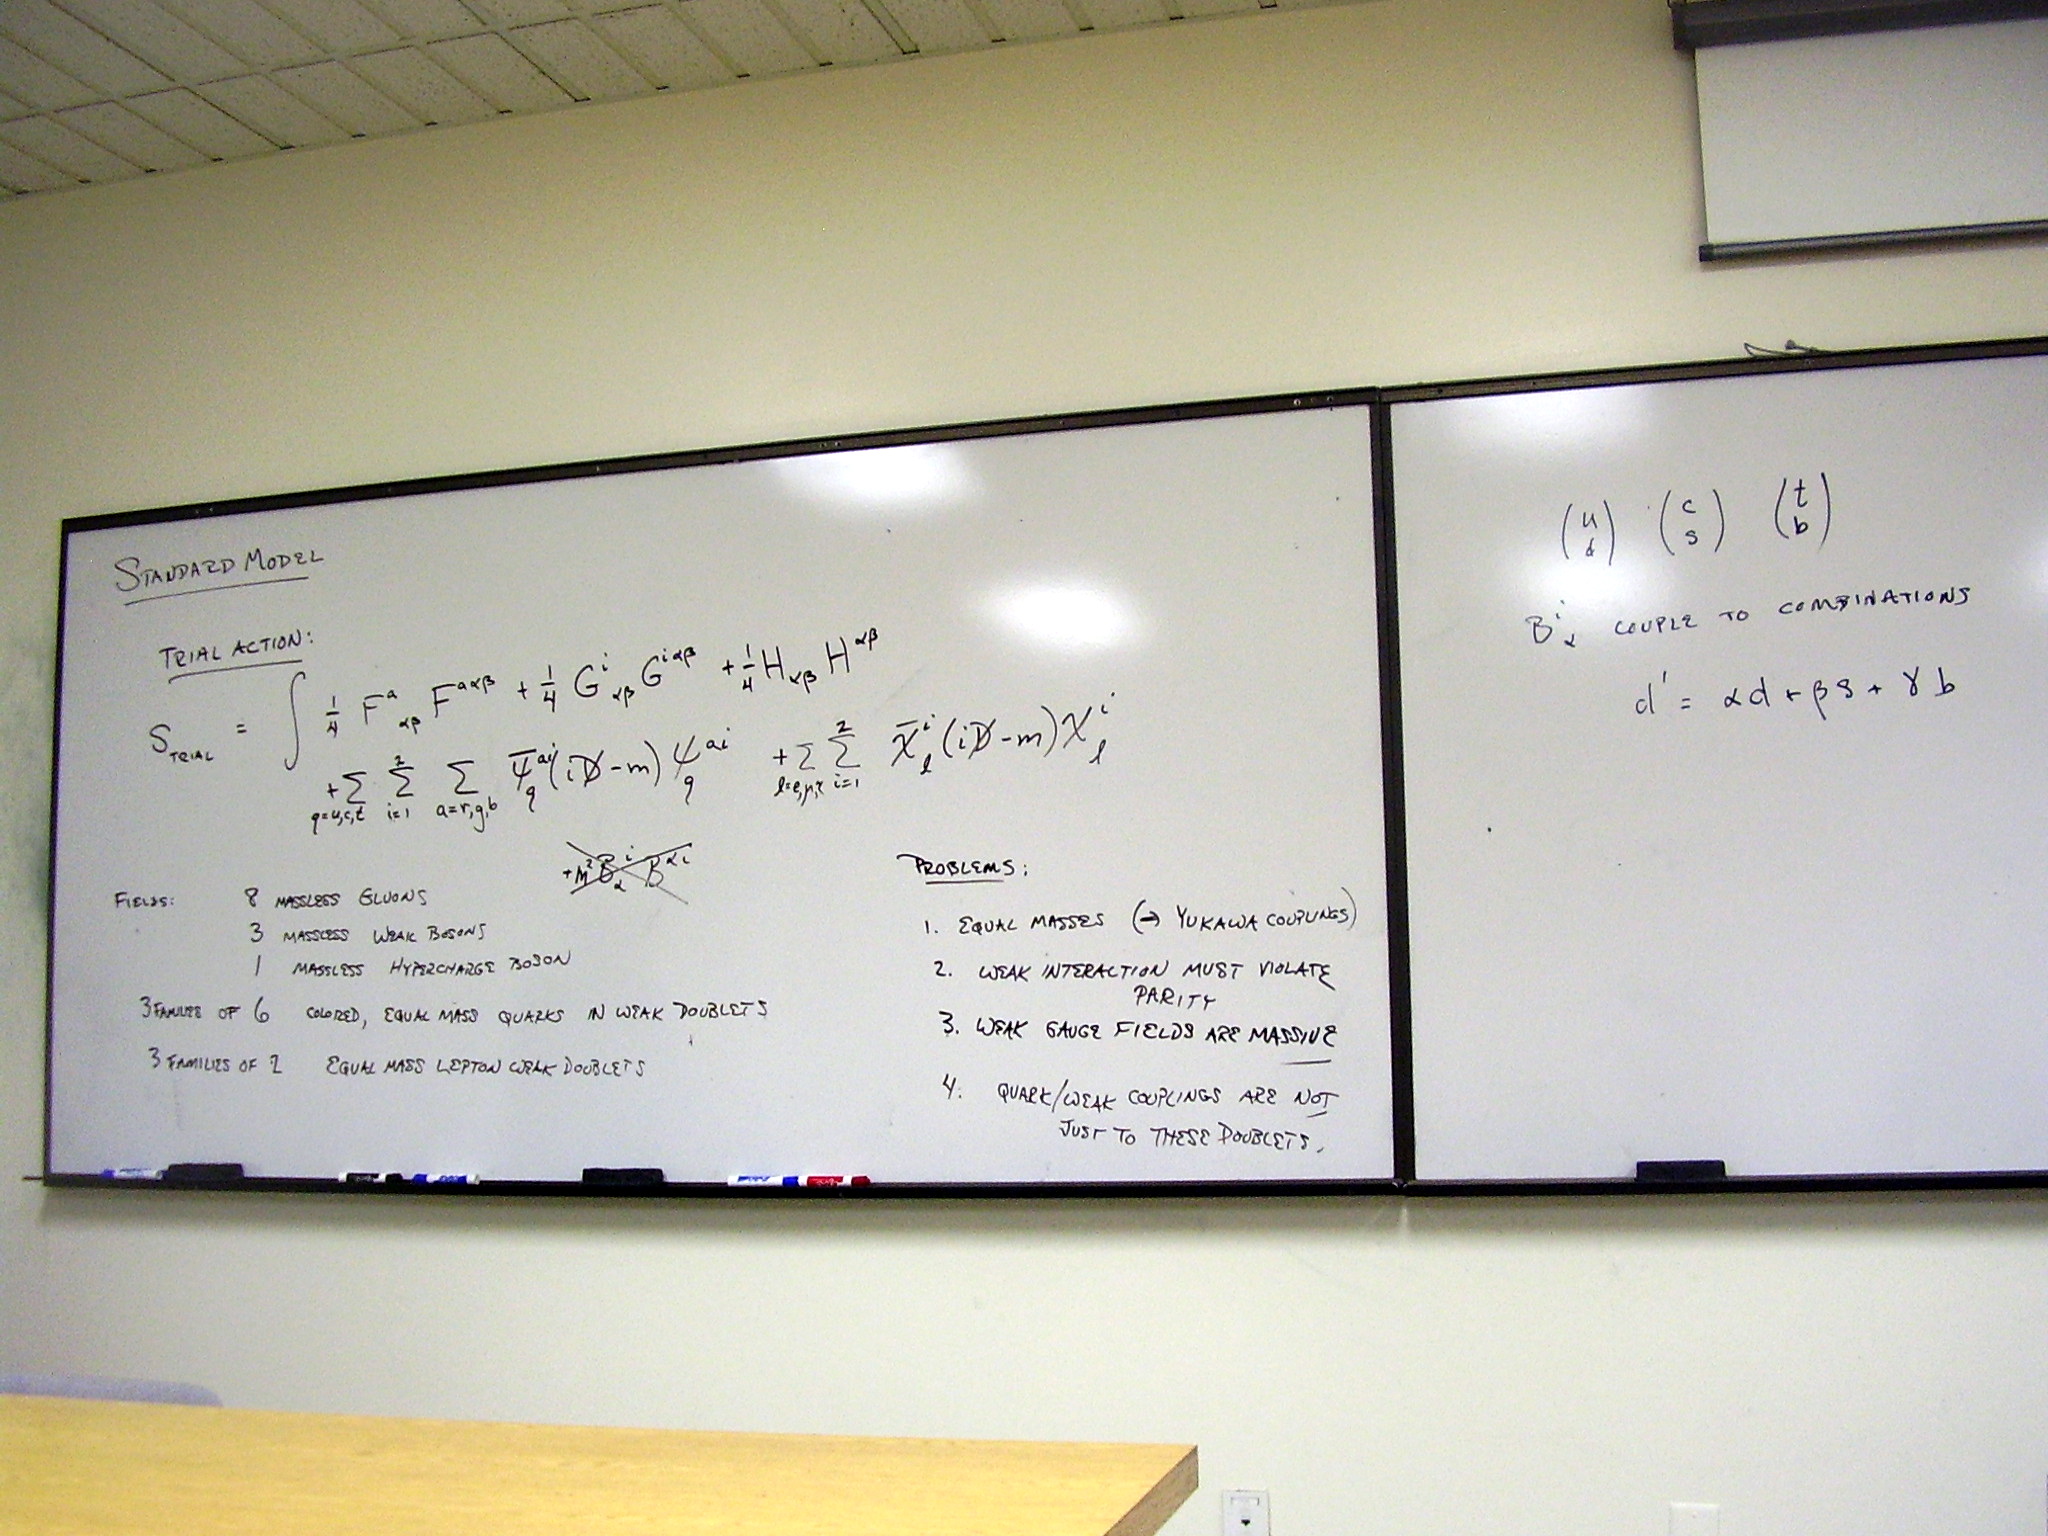 STANDARD MODEL
TRIAL ACTION:
S_TRIAL = ∫ 1/4 F^a_αβ F^aαβ + 1/4 G^i_αβ G^iαβ + 1/4 H_αβ H^αβ
+ Σ_q=u,c,t Σ^2_i=1 Σ_a=r,g,b ψ̄^ai_q (iD̸-m) ψ^ai_q + Σ_l=e,μ,τ Σ^2_i=1 χ̄^i_l (iD̸-m) χ^i_l
+m² B^i_α B^αi
FIELDS: 8 MASSLESS GLUONS
3 MASSLESS WEAK BOSONS
1 MASSLESS HYPERCHARGE BOSON
3 FAMILIES OF 6 COLORED, EQUAL MASS QUARKS IN WEAK DOUBLETS
3 FAMILIES OF 2 EQUAL MASS LEPTON WEAK DOUBLETS
PROBLEMS:
1. EQUAL MASSES (→ YUKAWA COUPLINGS)
2. WEAK INTERACTION MUST VIOLATE
PARITY
3. WEAK GAUGE FIELDS ARE MASSIVE
4. QUARK/WEAK COUPLINGS ARE NOT
JUST TO THESE DOUBLETS.
(u d) (c s) (t b)
B^i_α COUPLE TO COMBINATIONS
d' = αd + βs + γb